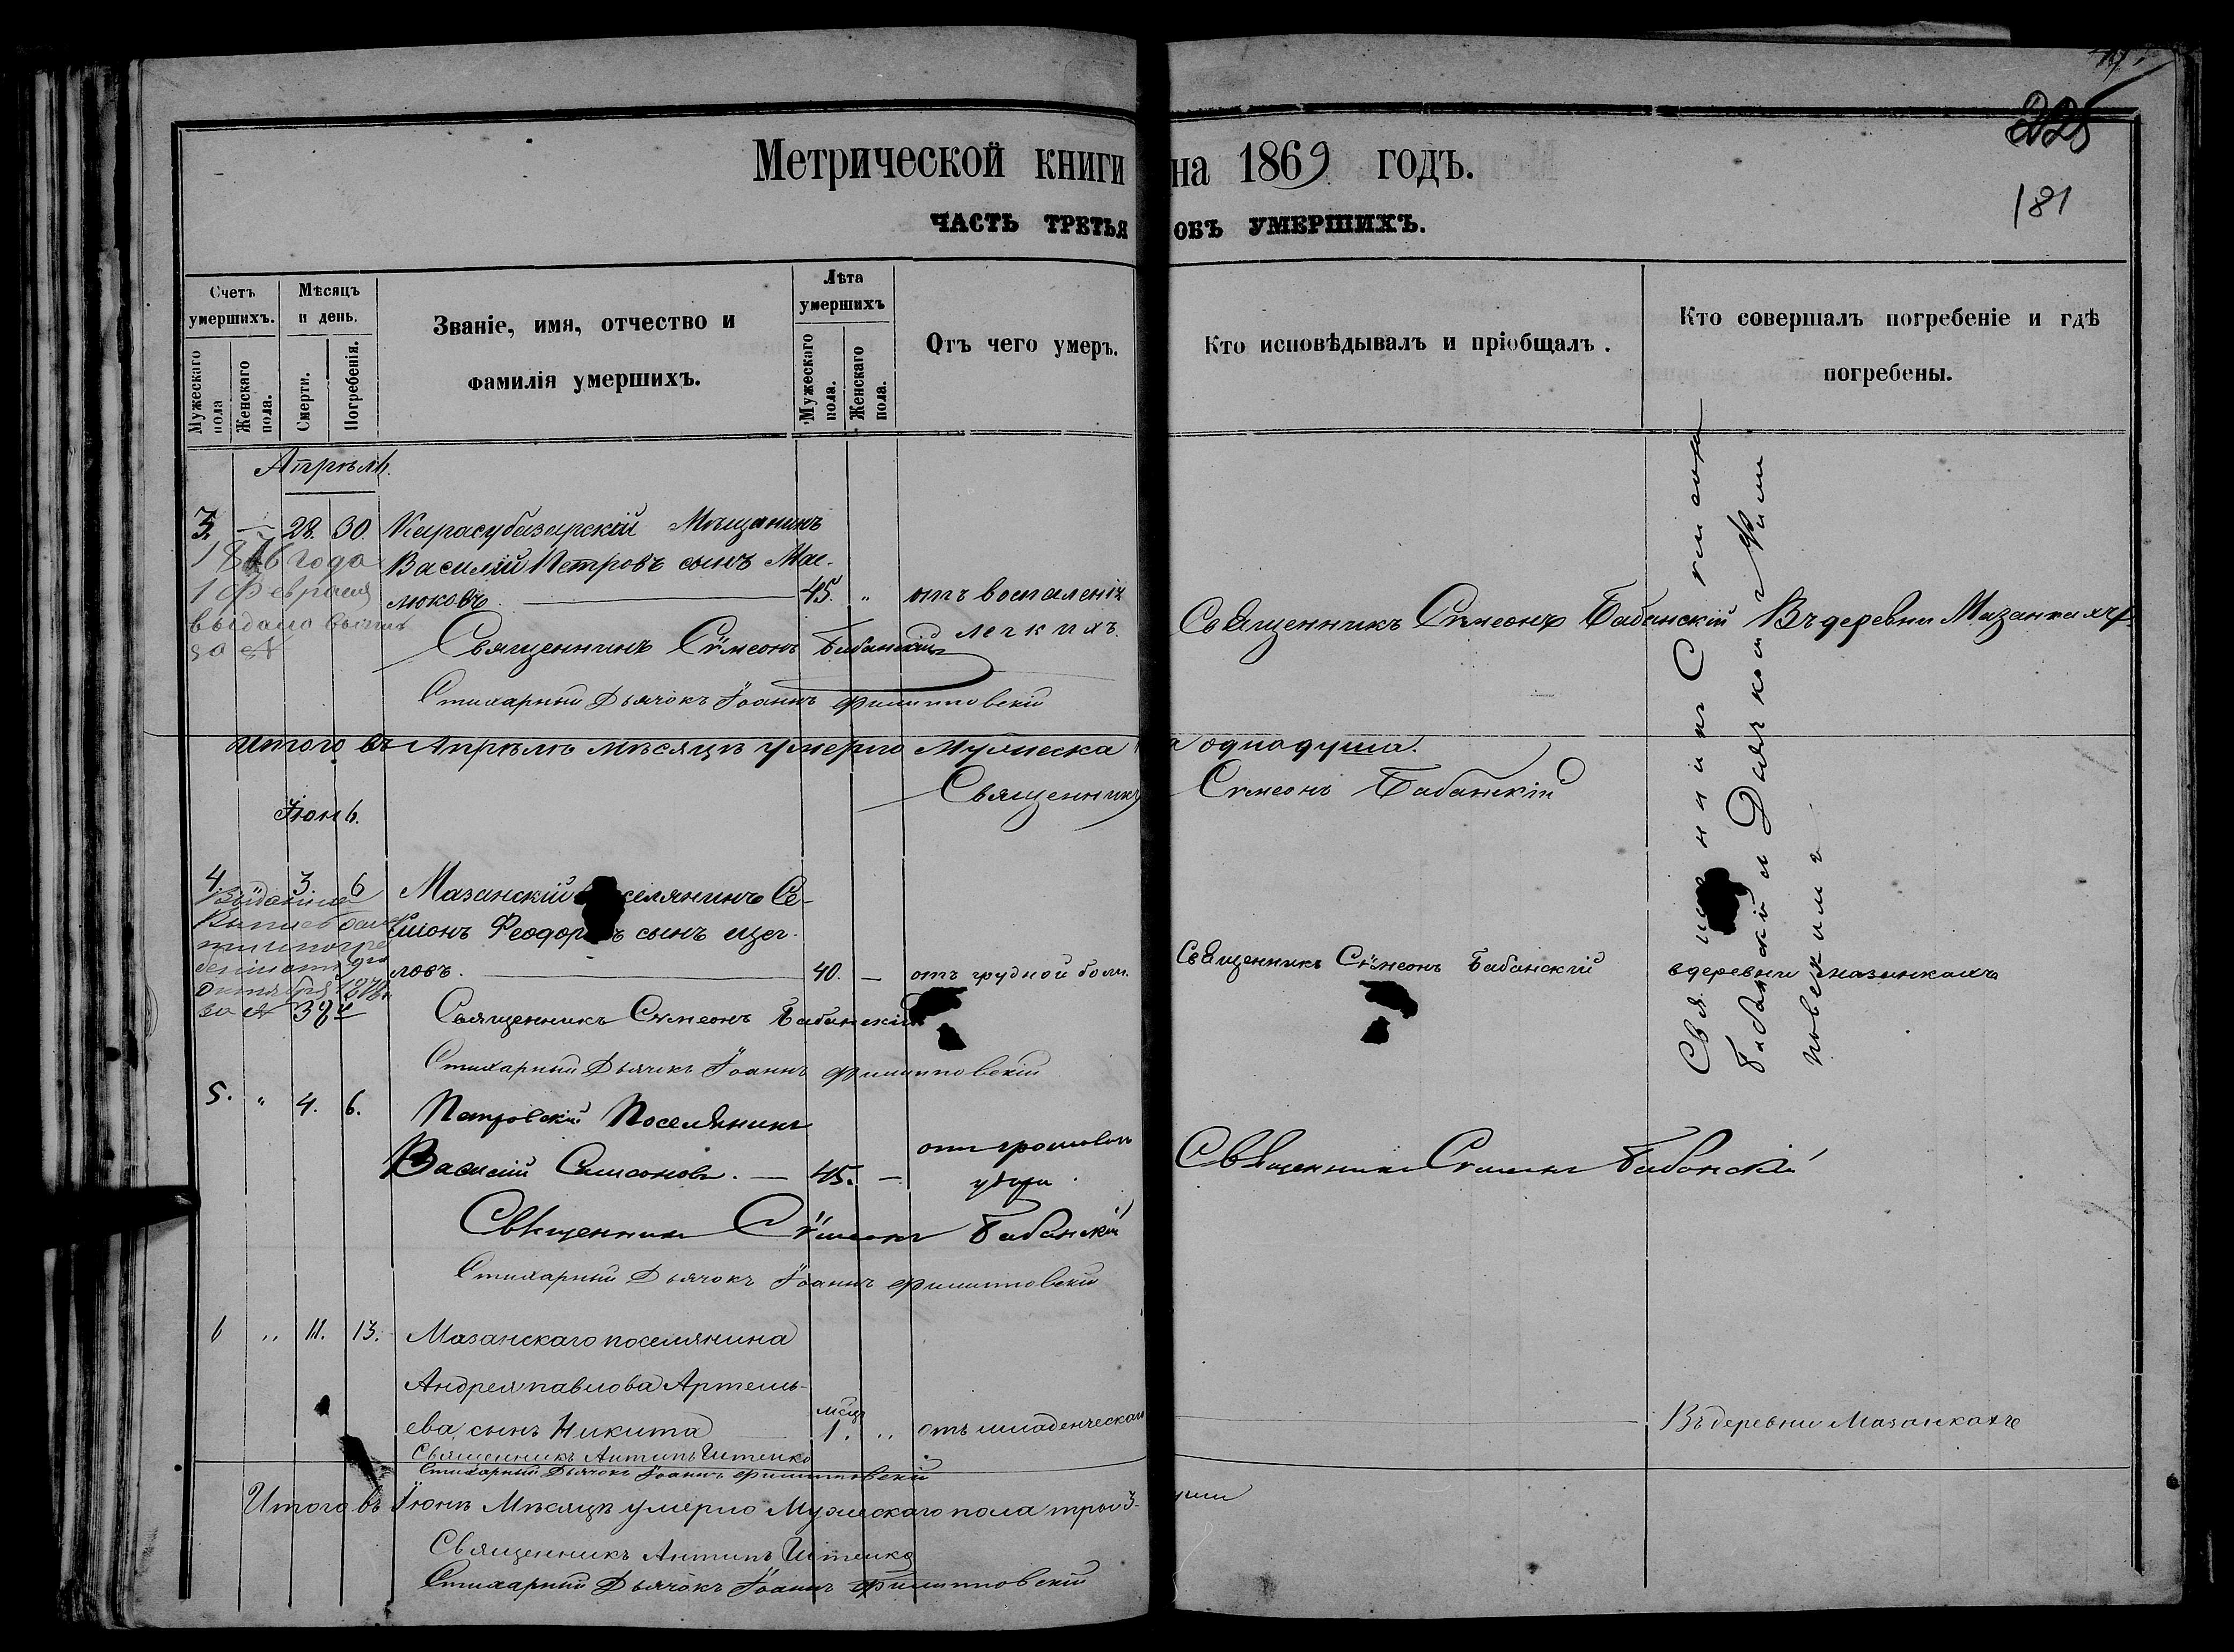 225
181
Метрической книги на 1869 годъ.
ЧАСТЬ ТРЕТЬЯ ОБЪ УМЕРШИХЪ.
Счетъ умершихъ.
Мѣсяцъ и день.
Званіе, имя, отчество и фамилія умершихъ.
Лѣта умершихъ
Отъ чего умеръ.
Кто исповѣдывалъ и пріобщалъ.
Кто совершалъ погребеніе и гдѣ погребены.
Мужескаго пола
Женскаго пола.
Смерти.
Погребенія.
Мужескаго пола.
Женскаго пола.
Апрѣль.
3. — 28. 30. Карасубазарскій Мѣщанинъ
Василій Петровъ сынъ Мас-
люковъ. 45. „ отъ воспаленія
легкихъ.
Священникъ Сѵмеонъ Бабанскій Въ деревни Мазанкахъ
1876 года
1 Февраля
выдано
за №
Священникъ Сѵмеонъ Бабанскій
Стихарный Дьячокъ Іоаннъ Филипповскій
Итого въ Апрѣлѣ мѣсяцѣ умерло Мужеска одна душа.
Священникъ Сѵмеонъ Бабанскій
Іюнь.
4. 3. 6 Мазанскій селянинъ Се-
мионъ Феодоровъ сынъ
ловъ. 40. — отъ грудной боли.
Священникъ Сѵмеонъ Бабанскій в деревни мазанкахъ
Октября 1878
за №
Священникъ Сѵмеонъ Бабанскій
Стихарный Дьячокъ Іоаннъ Филипповскій
5. „ 4. 6. Петровскій Поселянинъ
Василій Самсоновъ. — 45. — отъ громового
удара
Священникъ Сѵмеонъ Бабанскій
Священникъ Сѵмеонъ Бабанскій
Стихарный Дьячокъ Іоаннъ Филипповскій
Священникъ Сѵмеонъ
Бабанскій и Дьячкомъ Филип
повскимъ
6 „ 11. 13. Мазанскаго поселянина
Андрея павлова Артемь-
ева сынъ Никита мѣсяц. 1. „ отъ младенческой
Въ деревни Мазанкахъ
Священникъ Антипъ
Стихарный Дьячокъ Іоаннъ Филипповскій
Итого въ Іюнѣ Мѣсяцѣ умерло Мужескаго пола три 3-
души
Священникъ Антипъ
Стихарный Дьячокъ Іоаннъ Филипповскій